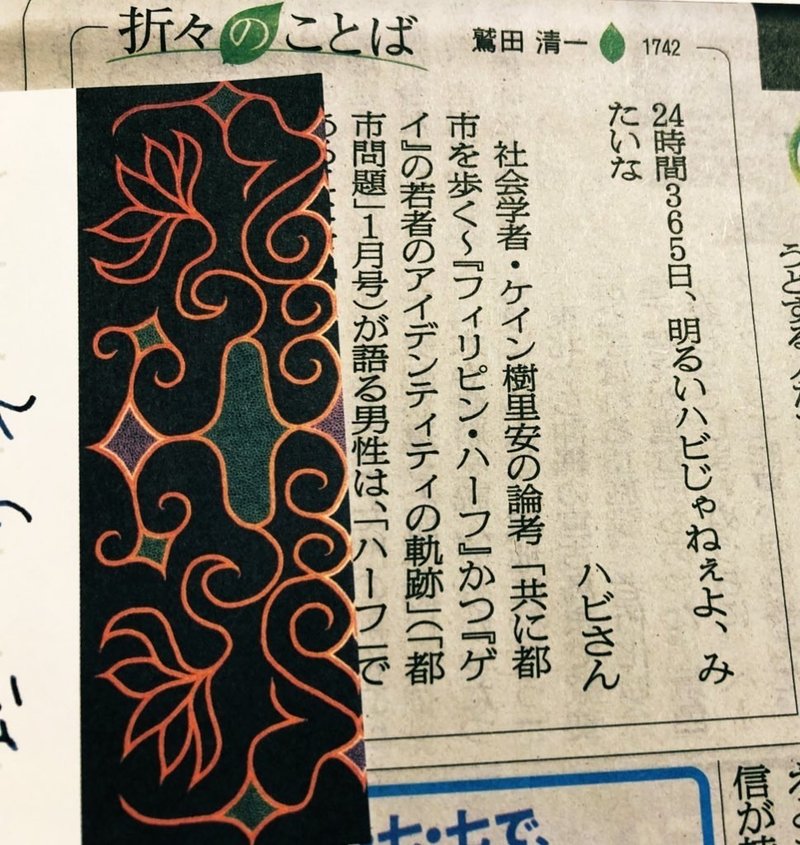 折々のことば
鷲田 清一
1742
24時間365日、明るいハビじゃねぇよ、み
たいな
ハビさん
社会学者・ケイン樹里安の論考「共に都
市を歩く〜『フィリピン・ハーフ』かつ『ゲ
イ』の若者のアイデンティティの軌跡」(「都
市問題」1月号)が語る男性は、「ハーフ」で
うとする
七・七で、
信が